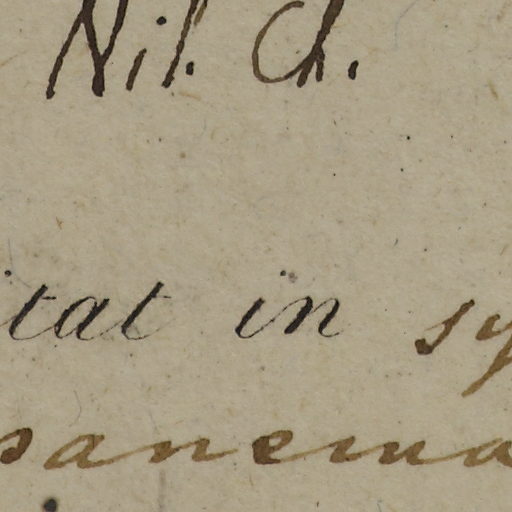 Nil. Ch.
itat in sy
sanema